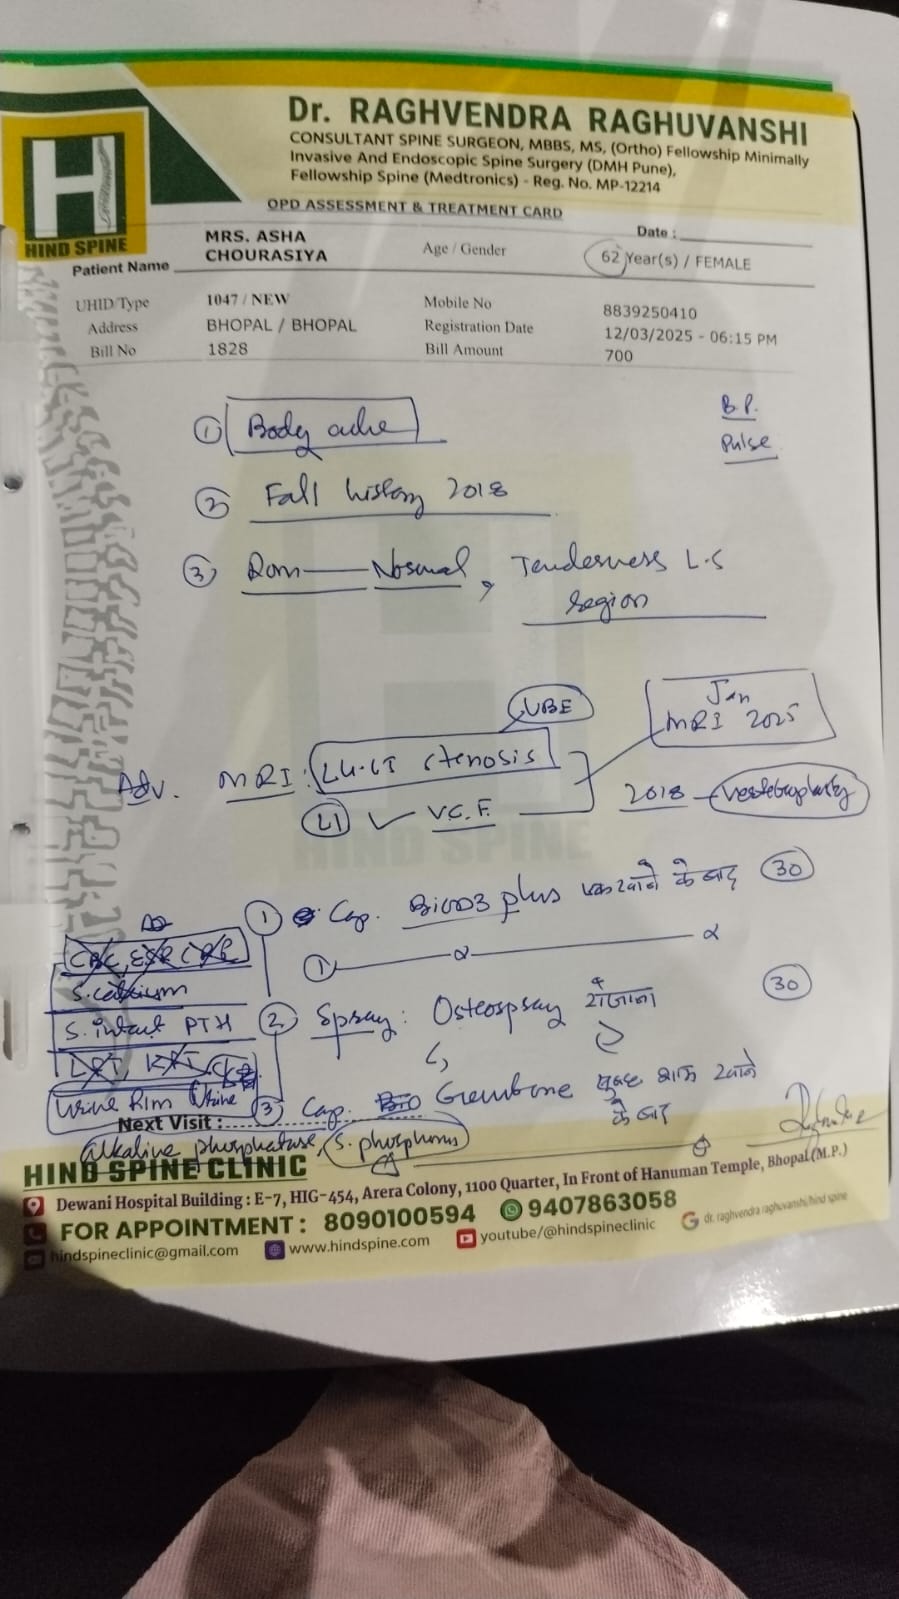 Dr. RAGHVENDRA RAGHUVANSHI
CONSULTANT SPINE SURGEON, MBBS, MS, (Ortho) Fellowship Minimally
Invasive And Endoscopic Spine Surgery (DMH Pune),
Fellowship Spine (Medtronics) - Reg. No. MP-12214
OPD ASSESSMENT & TREATMENT CARD
H
HIND SPINE
Date :
Patient Name MRS. ASHA CHOURASIYA Age / Gender 62 Year(s) / FEMALE
UHID/Type 1047 / NEW Mobile No 8839250410
Address BHOPAL / BHOPAL Registration Date 12/03/2025 - 06:15 PM
Bill No 1828 Bill Amount 700
B.P.
Pulse
① Body ache
② Fall history 2018
③ Rom — Normal, Tenderness L-S
region
UBE
Jan
MRI 2025
Adv. MRI: L4-L5 stenosis
L1 ✓ V.C.F.
2018 - Vertebroplasty
① Cap. plus के बाद 30
① — —
② Spray: Osteospray रोजाना 30
③ Cap. Gembone सुबह शाम खाने
के बाद
CBC, ESR CRP
S. calcium
S. intact PTH
LFT, KFT,
Urine R/m
Next Visit :
Alkaline phosphatase, S. phosphorus
HIND SPINE CLINIC
Dewani Hospital Building : E-7, HIG-454, Arera Colony, 1100 Quarter, In Front of Hanuman Temple, Bhopal (M.P.)
FOR APPOINTMENT : 8090100594 9407863058
hindspineclinic@gmail.com www.hindspine.com youtube/@hindspineclinic dr. raghvendra raghuvanshi/hind spine
HIND SPINE